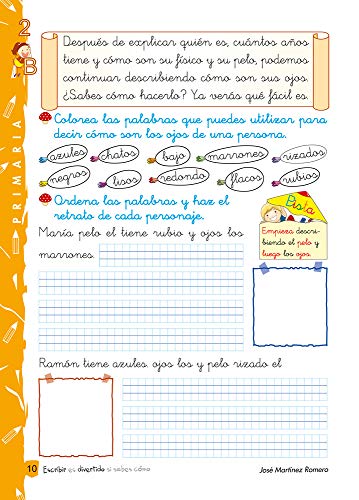 2
B
PRIMARIA
Después de explicar quién es, cuántos años
tiene y cómo son su físico y su pelo, podemos
continuar describiendo cómo son sus ojos.
¿Sabes cómo hacerlo? Ya verás qué fácil es.
Colorea las palabras que puedes utilizar para
decir cómo son los ojos de una persona.
azules chatos bajo marrones rizados
negros lisos redondo flacos rubios
Ordena las palabras y haz el
retrato de cada personaje.
Pista
María pelo el tiene rubio y ojos los
marrones.
Empieza descri-
biendo el pelo y
luego los ojos.
Ramón tiene azules. ojos los y pelo rizado el
10 Escribir es divertido si sabes cómo
José Martínez Romero